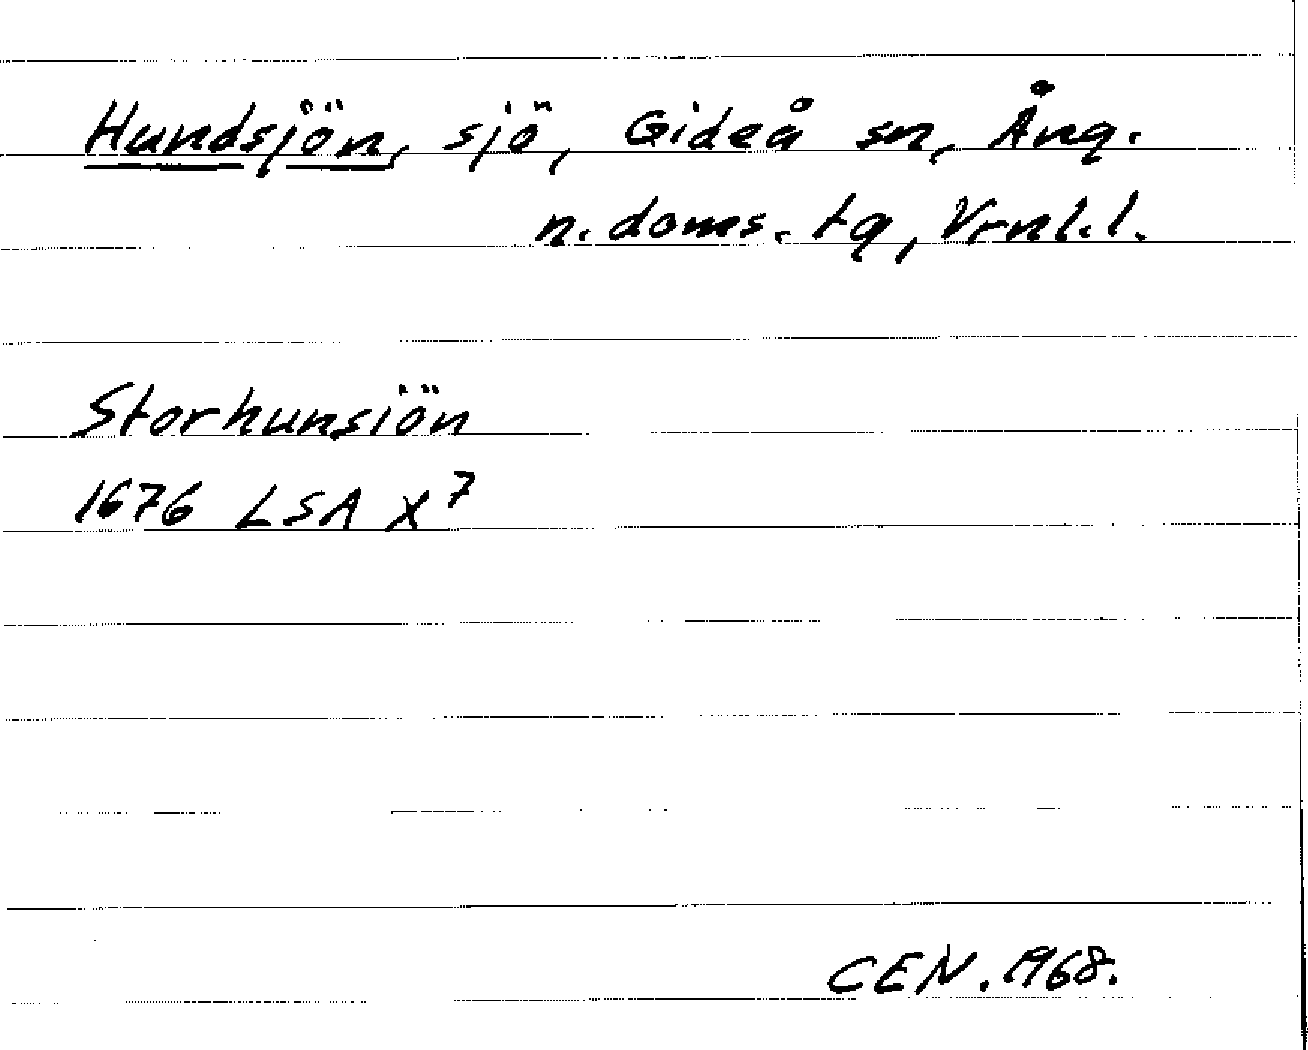 Hundsjön, sjö, Gideå sn, Ång.
n. doms. tg, Vrnl.l.
Storhunsiön
1676 LSA X⁷
CEN. 1968.